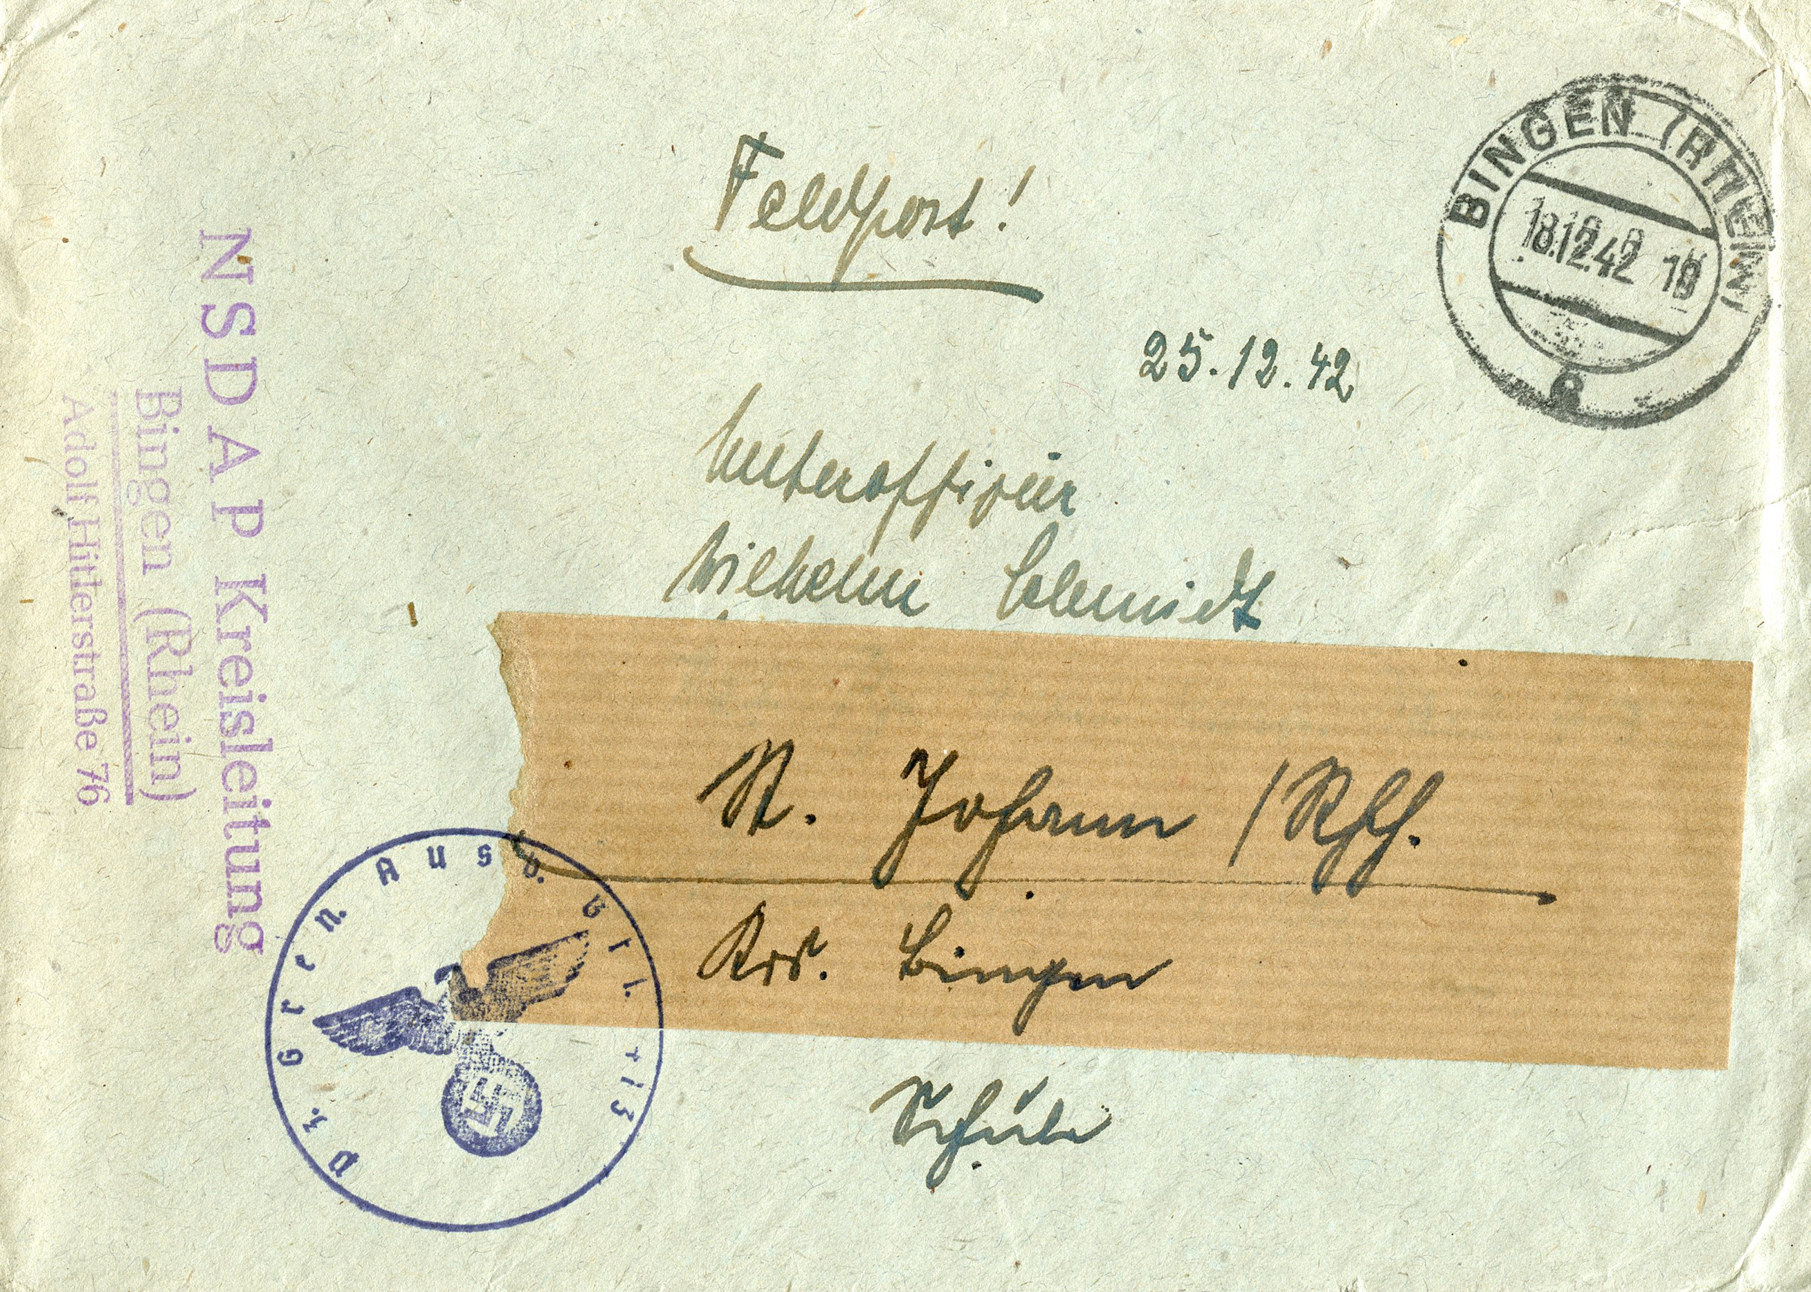 Feldpost!
BINGEN (RHEIN)
18.12.42
25.12.42
Unteroffizier
Wilhelm Schmidt
St. Johann / Rhh.
Krs. Bingen
Schule
NSDAP Kreisleitung
Bingen (Rhein)
Adolf Hitlerstraße 76
Pz. Gren. Ausb. Btl. 413